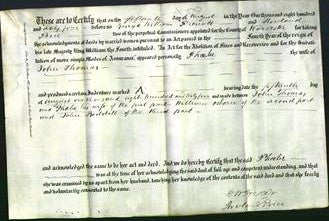 These are to Certify that on the fifteenth day of August in the Year One thousand eight hundred
and sixty four before us George William and Herbert
Price two of the perpetual Commissioners appointed for the County of Worcester for taking
the acknowledgments of deeds by married women pursuant to an Act passed in the Fourth Year of the reign of
his late Majesty King William the Fourth intituled An Act for the Abolition of Fines and Recoveries and for the Substitu-
tion of more simple Modes of Assurance appeared personally Phœbe the wife of
John Thomas
and produced a certain Indenture marked A bearing date the fifteenth day
of August one thousand eight hundred and sixty four and made between John Thomas
and Phœbe his wife of the first part William of the second part
and John of the third part
and acknowledged the same to be her act and deed. And we do hereby Certify that the said Phœbe
was at the time of her acknowledging the said deed of full age and competent understanding, and that
she was examined by us apart from her husband, touching her knowledge of the contents of the said deed and that she freely
and voluntarily consented to the same.
Price